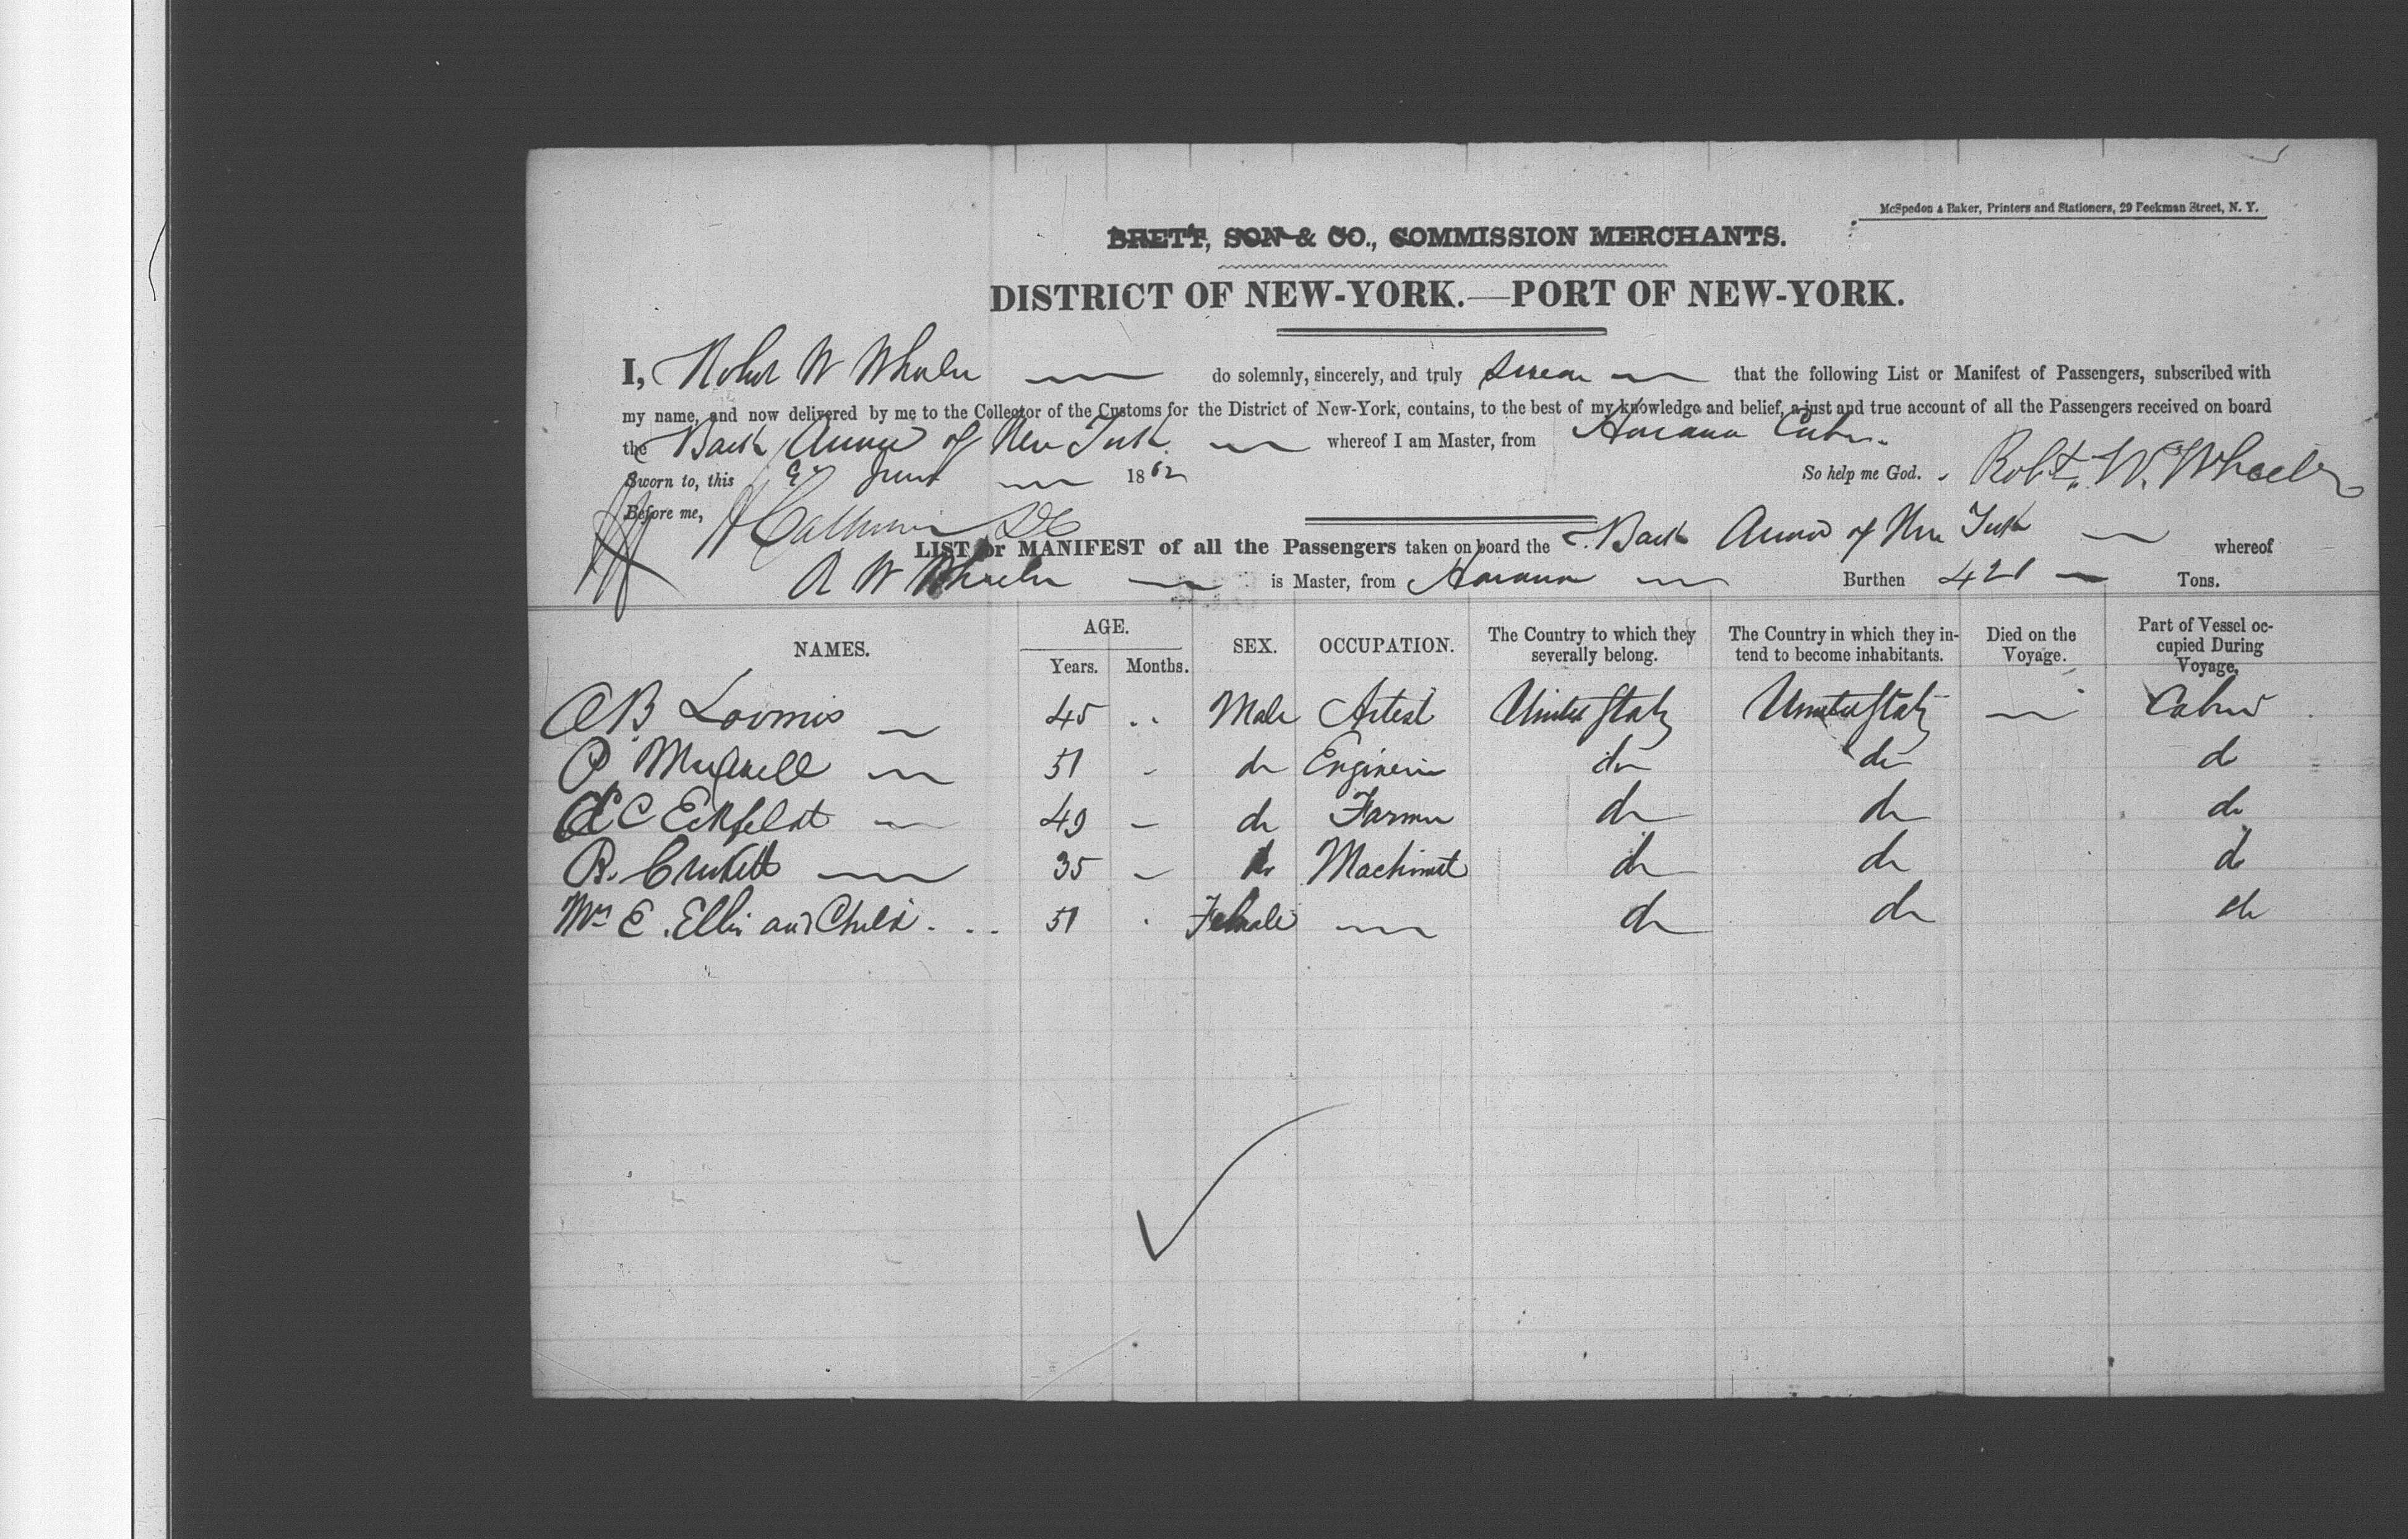 McSpedon & Baker, Printers and Stationers, 29 Beekman Street, N. Y.
BRETT, SON & CO., COMMISSION MERCHANTS.
DISTRICT OF NEW-YORK.—PORT OF NEW-YORK.
I, Robert W Wheeler do solemnly, sincerely, and truly swear that the following List or Manifest of Passengers, subscribed with
my name, and now delivered by me to the Collector of the Customs for the District of New-York, contains, to the best of my knowledge and belief, a just and true account of all the Passengers received on board
the Bark of New York whereof I am Master, from Havana Cuba.
Sworn to, this 9 June 1862 So help me God. Robt. W. Wheeler
Before me, Calhoun DC
LIST or MANIFEST of all the Passengers taken on board the Bark of New York whereof
R W Wheeler is Master, from Havana Burthen 421 Tons.
NAMES. AGE. Years. Months. SEX. OCCUPATION. The Country to which they severally belong. The Country in which they intend to become inhabitants. Died on the Voyage. Part of Vessel occupied During Voyage.
O B Loomis 45 .. Male Artist United States United States — Cabin
P 51 - do Engineer do do do
C Eckfeldt 49 — do Farmer do do do
R. 35 — do Machinist do do do
Mrs E. Ellis and Child 51 . Female — do do do